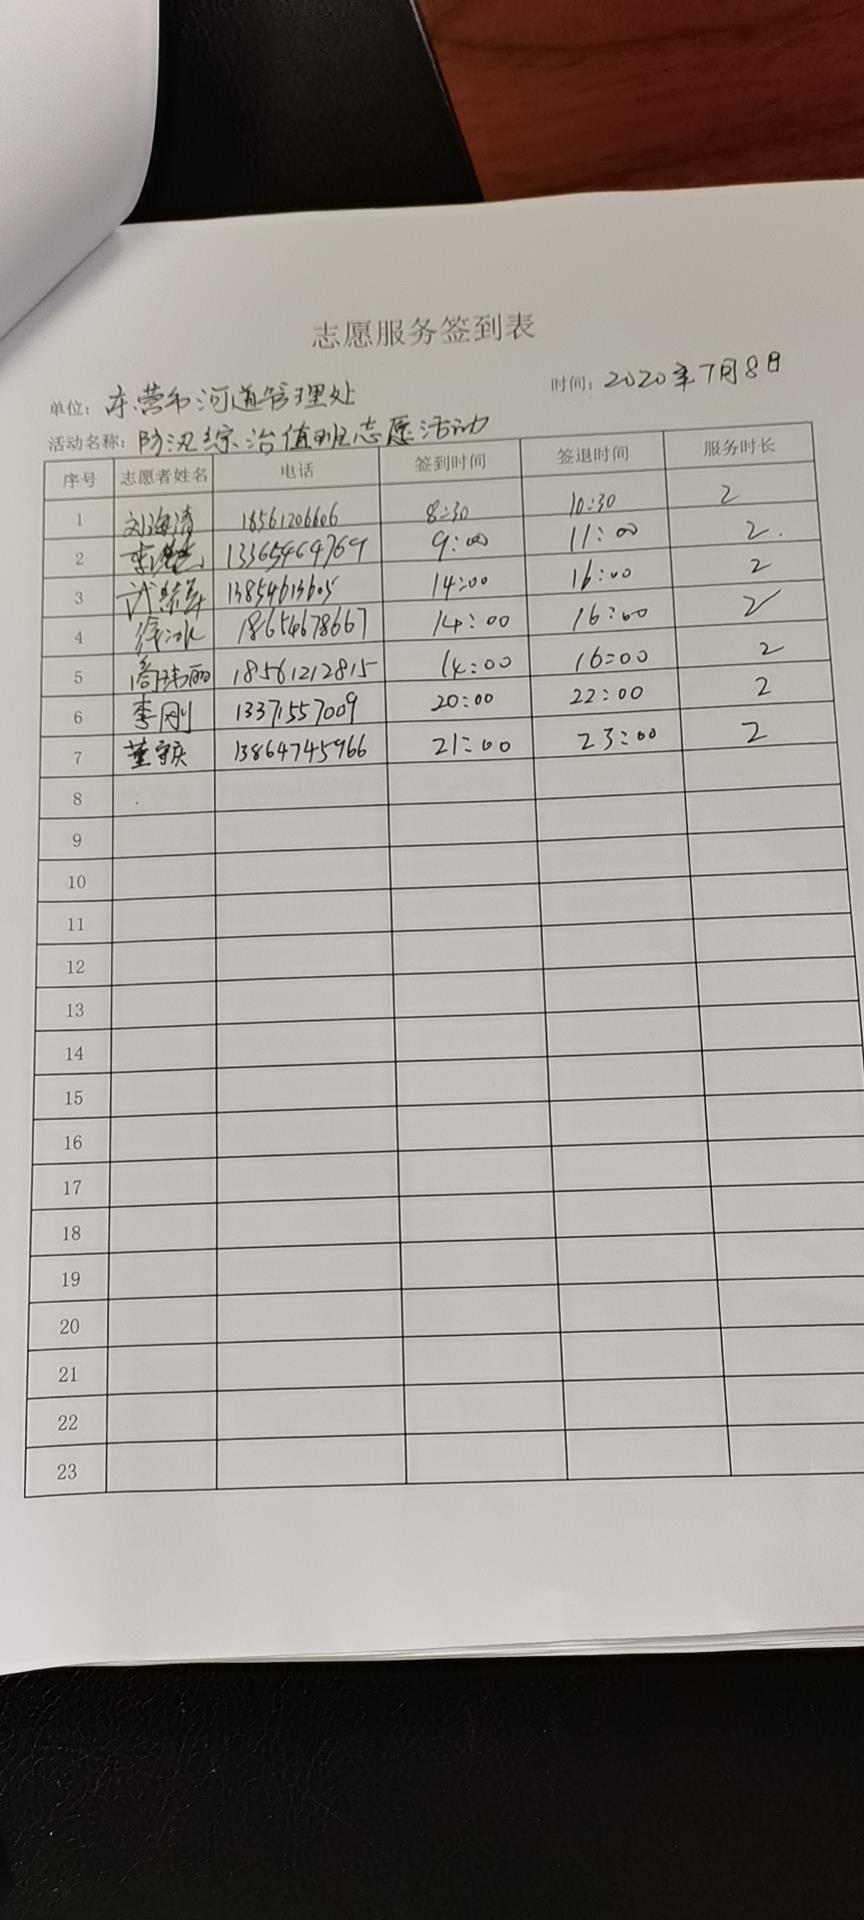 志愿服务签到表
单位：东营市河道管理处 时间：2020年7月8日
活动名称：防汛综治值班志愿活动
序号 志愿者姓名 电话 签到时间 签退时间 服务时长
1 刘海清 18561206606 8:30 10:30 2
2 13365464769 9:00 11:00 2.
3 13854613605 14:00 16:00 2
4 徐冰 18654678667 14:00 16:00 2
5 18561212815 14:00 16:00 2
6 李刚 13371557009 20:00 22:00 2
7 董守庆 13864745966 21:00 23:00 2
8
9
10
11
12
13
14
15
16
17
18
19
20
21
22
23